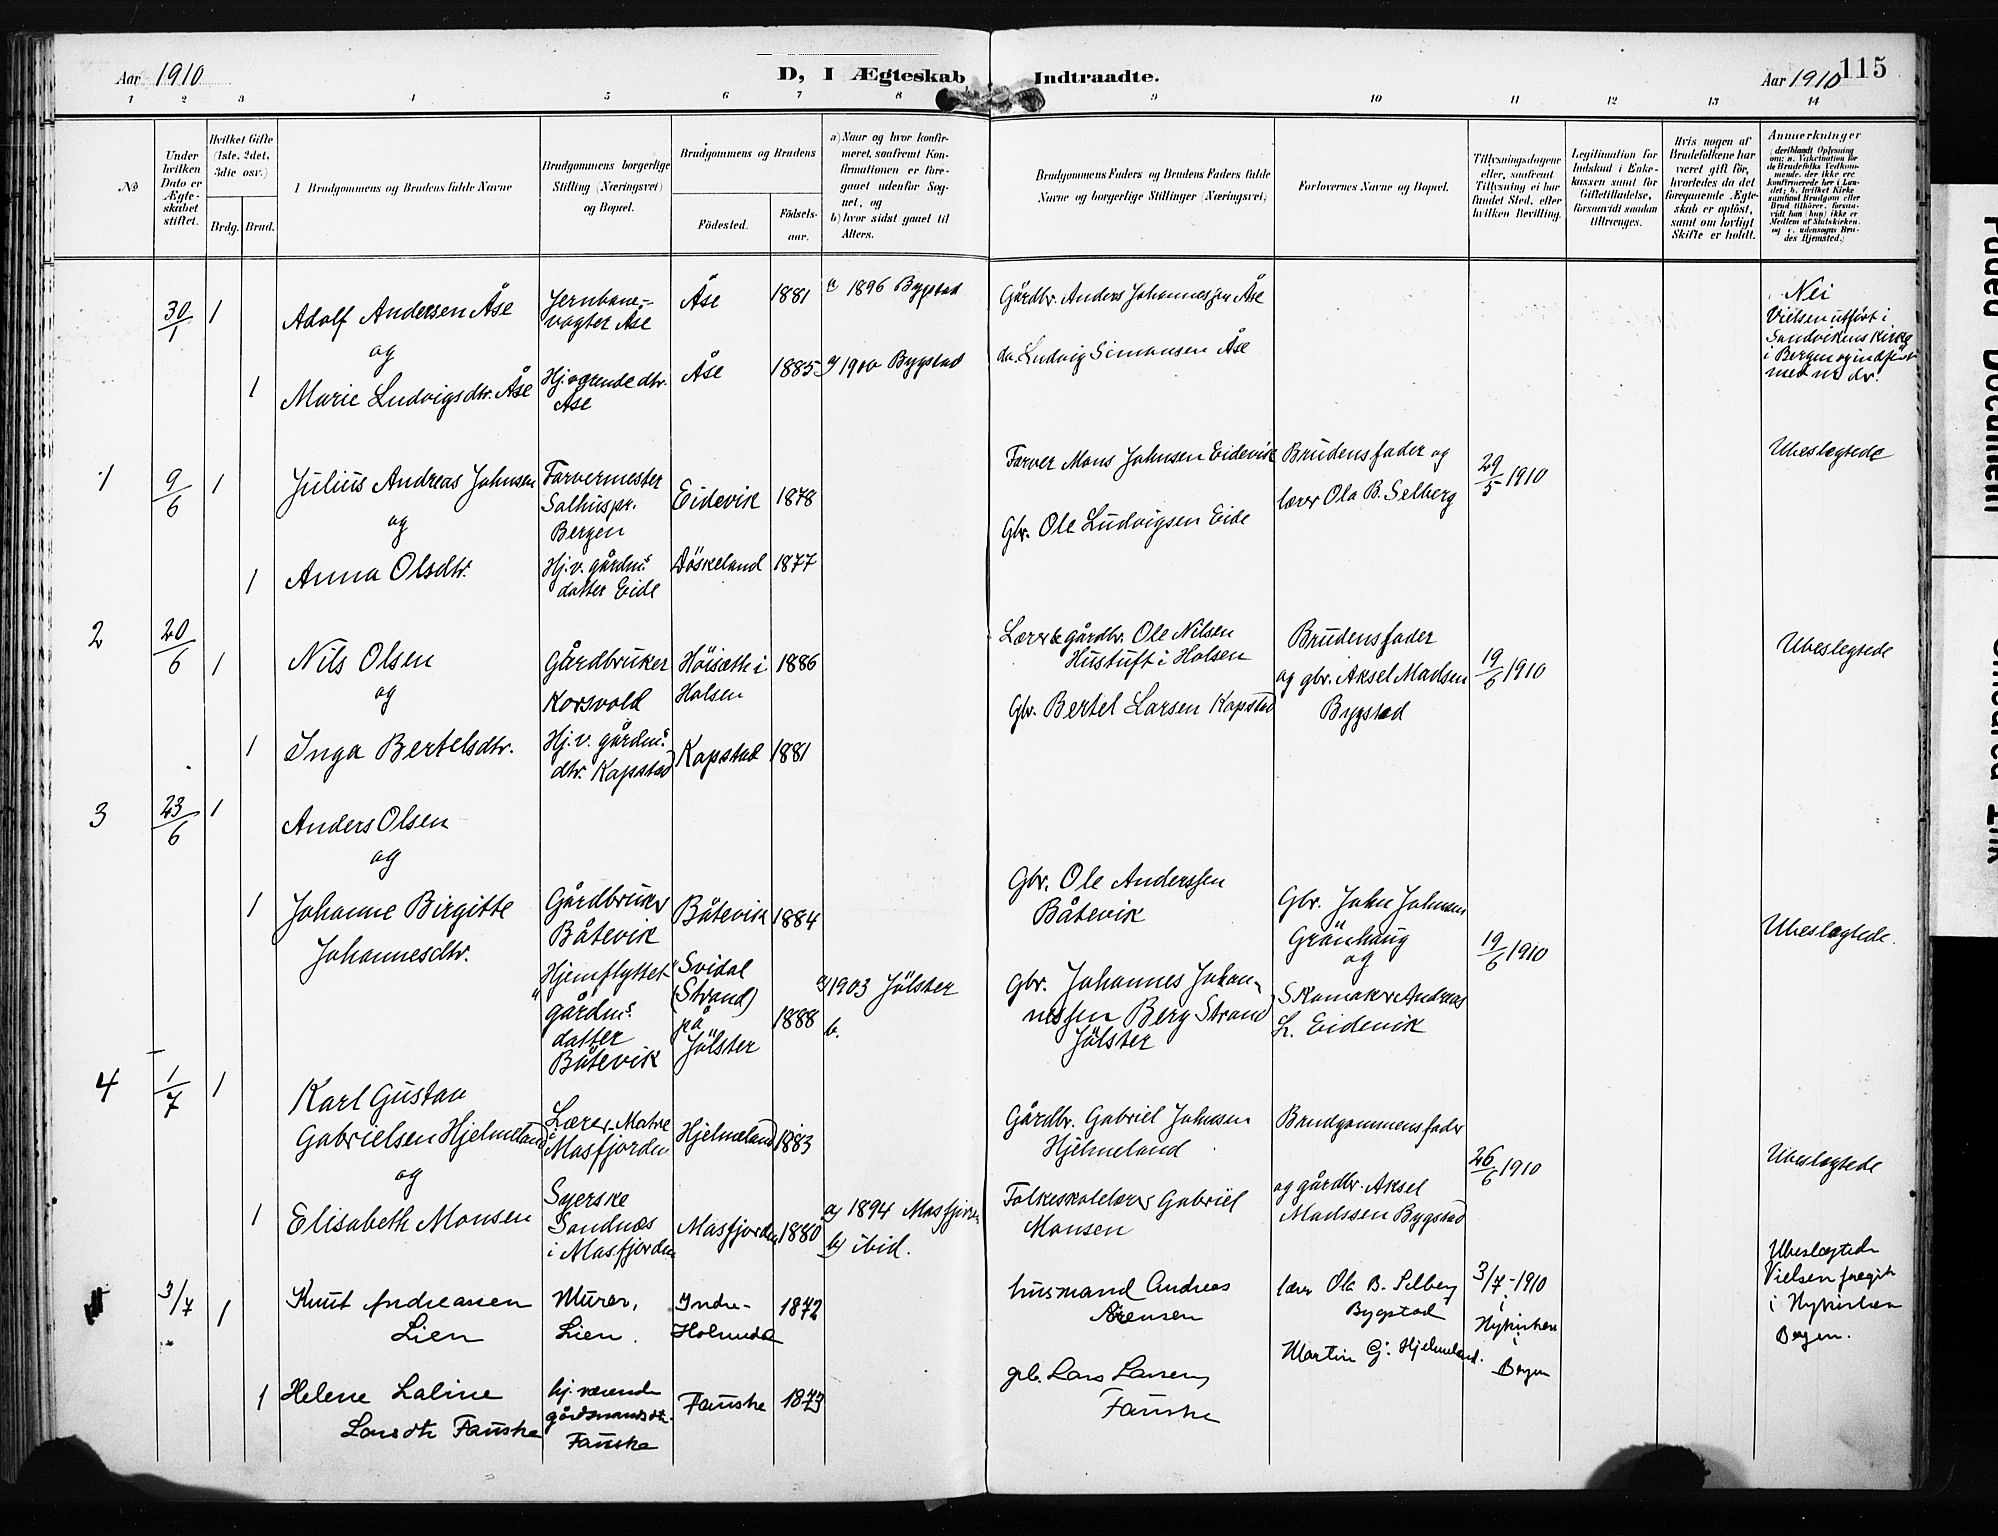 Aar 1910
D, I Ægteskab Indtraadte.
Aar 1910
115
1 2 3 4 5 6 7 8 9 10 11 12 13 14
No
Under hvilken Dato er Ægteskabet stiftet.
Hvilket Gifte (1ste, 2det, 3die osv.)
Brdg. Brud.
Brudgommens og Brudens fulde Navne
Brudgommens borgerlige Stilling (Næringsvei) og Bopæl.
Brudgommens og Brudens
Fødested.
Fødselsaar.
a) Naar og hvor konfirmeret, saafremt Konfirmationen er foregaaet udenfor Sognet, og
b) hvor sidst gaaet til Alters.
Brudgommens Faders og Brudens Faders fulde Navne og borgerlige Stillinger (Næringsvei)
Forlovernes Navne og Bopæl.
Tillysningsdagene eller, saafremt Tillysning ei har fundet Sted, efter hvilken Bevilling.
Legitimation for Indskud i Enkekassen samt for Giftetilladelse, forsaavidt saadan tiltrænges.
Hvis nogen af Brudefolkene har været gift før, hvorledes da det foregaaende Ægteskab er opløst, samt om lovligt Skifte er holdt.
Anmerkninger
(deriblandt Oplysning om: a. Vakcination for de Brudefolks Vedkommende, der ikke ere konfirmerede her i Landet; b. hvilket Kirkesamfund Brudgom eller Brud tilhører, forsaavidt han (hun) ikke er Medlem af Statskirken, og c. udensogns Brudes Hjemsted.)
30/1 1 Adolf Andersen Åse
Jernbanevogter Åse
Åse 1881 a 1896 Bygstad
Gårdbr. Anders Johannessen Åse
Nei
Vielsen utført i
Sandvikens kirke
i Bergen og indført
og
1 Marie Ludvigsdtr. Åse
Hj.værende dtr.
Åse
Åse 1885 a) 1900 Bygstad
do. Ludvig Simonsen Åse
1 9/6 1 Julius Andreas Johnsen
Farvermester
Salhus pr.
Bergen
Eidevik 1878
Farver Mons Johnsen Eidevik
Brudens fader og
lærer Ola B. Selberg
29/5 1910
Ubeslegtede
og
1 Anna Olsdtr.
Hj.v. gårdm.s
datter Eide
Döskeland 1877
Gbr. Ole Ludvigsen Eide
2 20/6 1 Nils Olsen
Gårdbruker
Korsvold
Höisæth i
Holsen
1886
Lærer & gårdbr. Ole Nilsen
Hustuft i Holsen
Brudens fader
og gbr. Aksel Madsen
Bygstad
19/6 1910
Ubeslegtede
og
1 Inga Bertelsdtr.
Hj.v. gårdm.s
dtr. Kapstad
Kapstad 1881
Gbr. Bertel Larsen Kapstad
3 23/6 1 Anders Olsen
og
1 Johanne Birgitte
Johannesdtr.
Gårdbruker
Båtevik
Båtevik 1884
Gbr. Ole Anderssen
Båtevik
Gbr. John Johnsen
Grönhaug
og
Skomaker Andreas
L. Eidevik
19/6 1910
Ubeslegtede.
Hjemflyttet
gårdm.s
datter
Båtevik
Svidal
(Strand)
på
Jölster
1888
a) 1903 Jölster
b.
Gbr. Johannes Johannessen Berg Strand
Jölster
4 1/7 1 Karl Gustav
Gabrielsen Hjelmeland
Lærer, Matre
i Masfjorden
Hjelmeland 1883
Gårdbr. Gabriel Johnsen
Hjelmeland
Brudgommens fader
og gårdbr. Aksel
Madssen Bygstad
26/6 1910
Ubeslegtede
og
1 Elisabeth Monsen
Syerske
Sandnæs
i Masfjorden
Masfjorden 1880
a) 1894 Masfjorden
b) ibid.
Folkeskolelærer Gabriel
Monsen
3/7 1 Knut Andreassen
Lien
Murer,
Lien.
Indre-
Holmedal
1872
husmand Andreas
Sørensen
lærer Ola B. Selberg
Bygstad
Martin G. Hjelmeland.
3/7-1910
i
Nykirken
i
Bergen
Ubeslegtede
Vielsen foregik
i Nykirken
Bergen.
1 Helene Laline
Larsdtr Fauske
hj.værende
gårdmandsdtr.
Fauske
Fauske 1873
gbr. Lars Larsen
Fauske
Faded Document